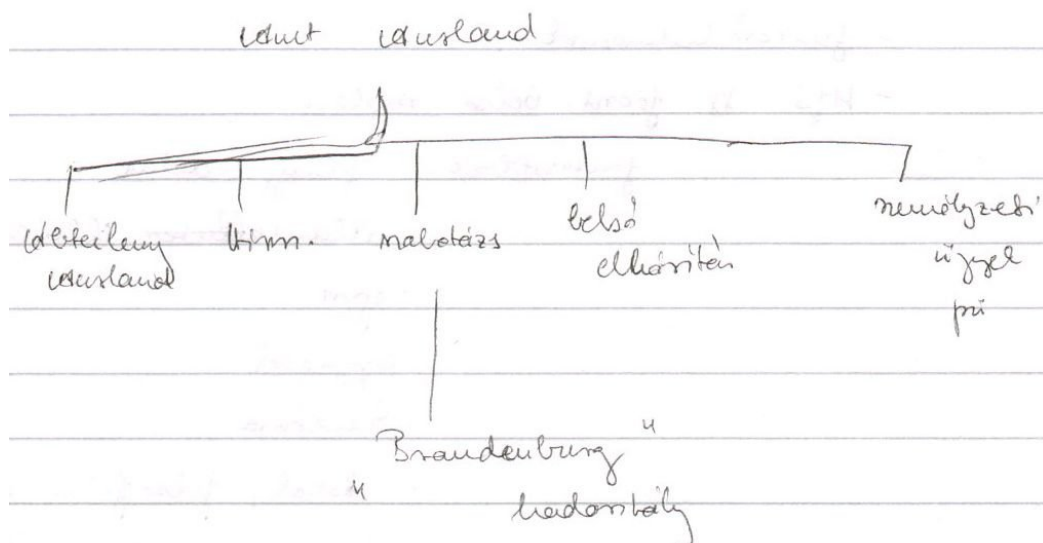 Amt Ausland
Abteilung
Ausland
hírsz.
szabotázs
belső
elhárítás
személyzeti
ügyek
pü
"Brandenburg"
hadosztály